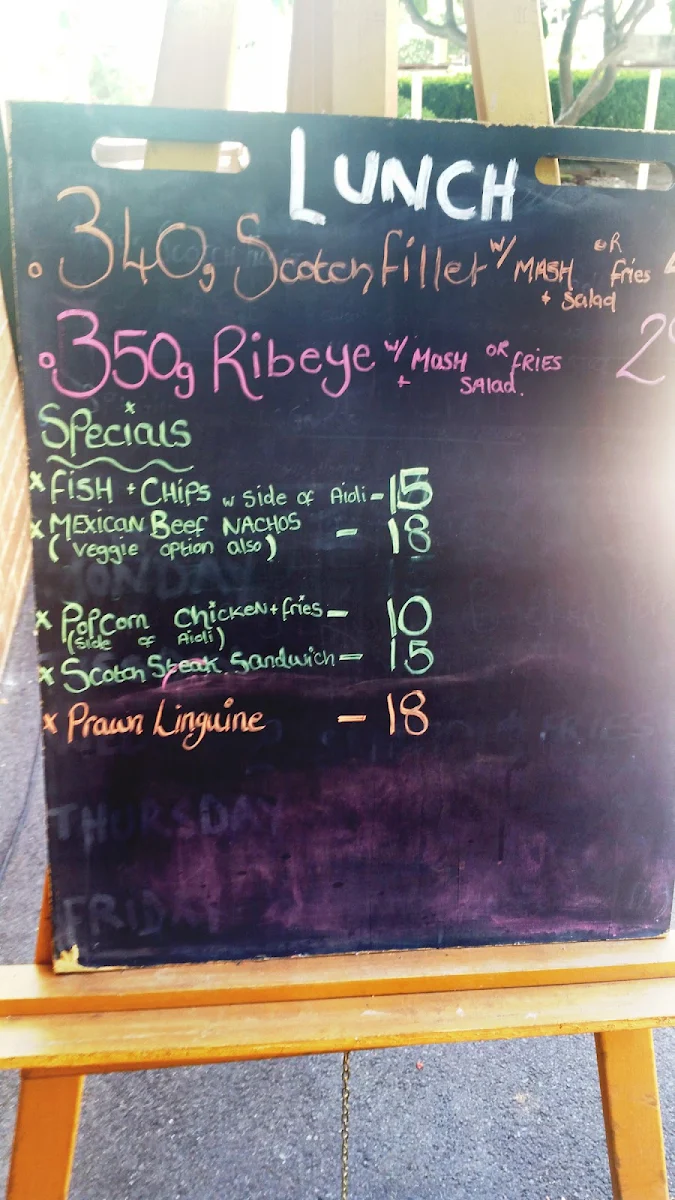 LUNCH
o 340g Scotch fillet w/ MASH OR fries
+ salad
o 350g Ribeye w/ MASH OR fRIES
+ SAlad.
Specials
x fiSH + CHiPs w Side of Aioli - 15
x MEXICAN Beef NACHOS - 18
(Veggie option also)
x PoPcorn Chicken + fries - 10
(side of Aioli)
x Scotch Steak Sandwich - 15
x Prawn Linguine - 18
THURSDAY
FRIDAY